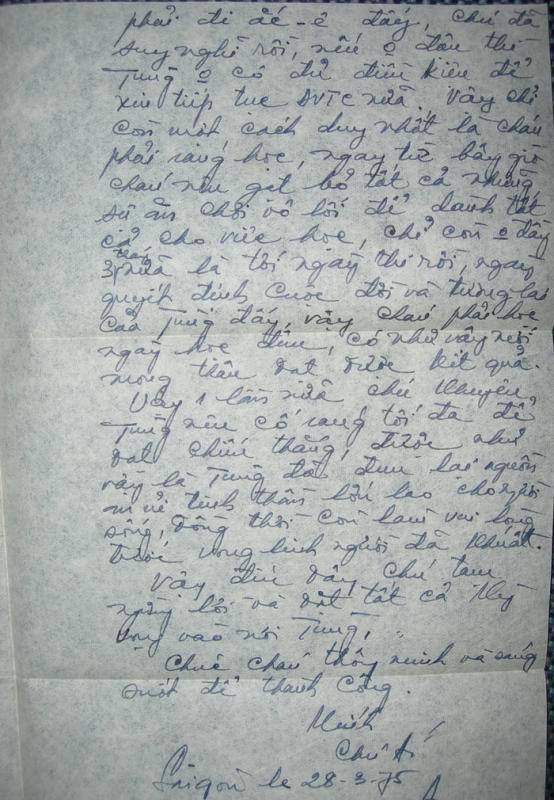 phải đi ắc-ê đấy, chú đã
suy nghĩ rồi, nếu o đậu thì
Tùng o có đủ điều kiện để
xin tiếp tục DVTC nữa. Vậy chỉ
còn một cách duy nhất là cháu
phải ráng học, ngay từ bây giờ
cháu nên gạt bỏ tất cả những
sự ăn chơi vô lối để dành tất
cả cho việc học, chỉ còn o đầy
3 tháng nữa là tới ngày thi rồi, ngày
quyết định cuộc đời và tương lai
của Tùng đấy, vậy cháu phải học
ngày học đêm, có như vậy mới
mong thân đạt được kết quả.
Vậy 1 lần nữa chú khuyên
Tùng nên cố ráng tối đa để
đạt chiến thắng, được như
vậy là Tùng đã đem lại nguồn
an ủi tinh thần lớn lao cho người
sống, đồng thời còn làm vui lòng
vong linh người đã khuất.
Vậy đến đây, chú tạm
ngừng lời và đặt tất cả hy
vọng vào nơi Tùng.
Chúc cháu thông minh và sáng
suốt để thành công.
Chú
Saigon le 28-3-75